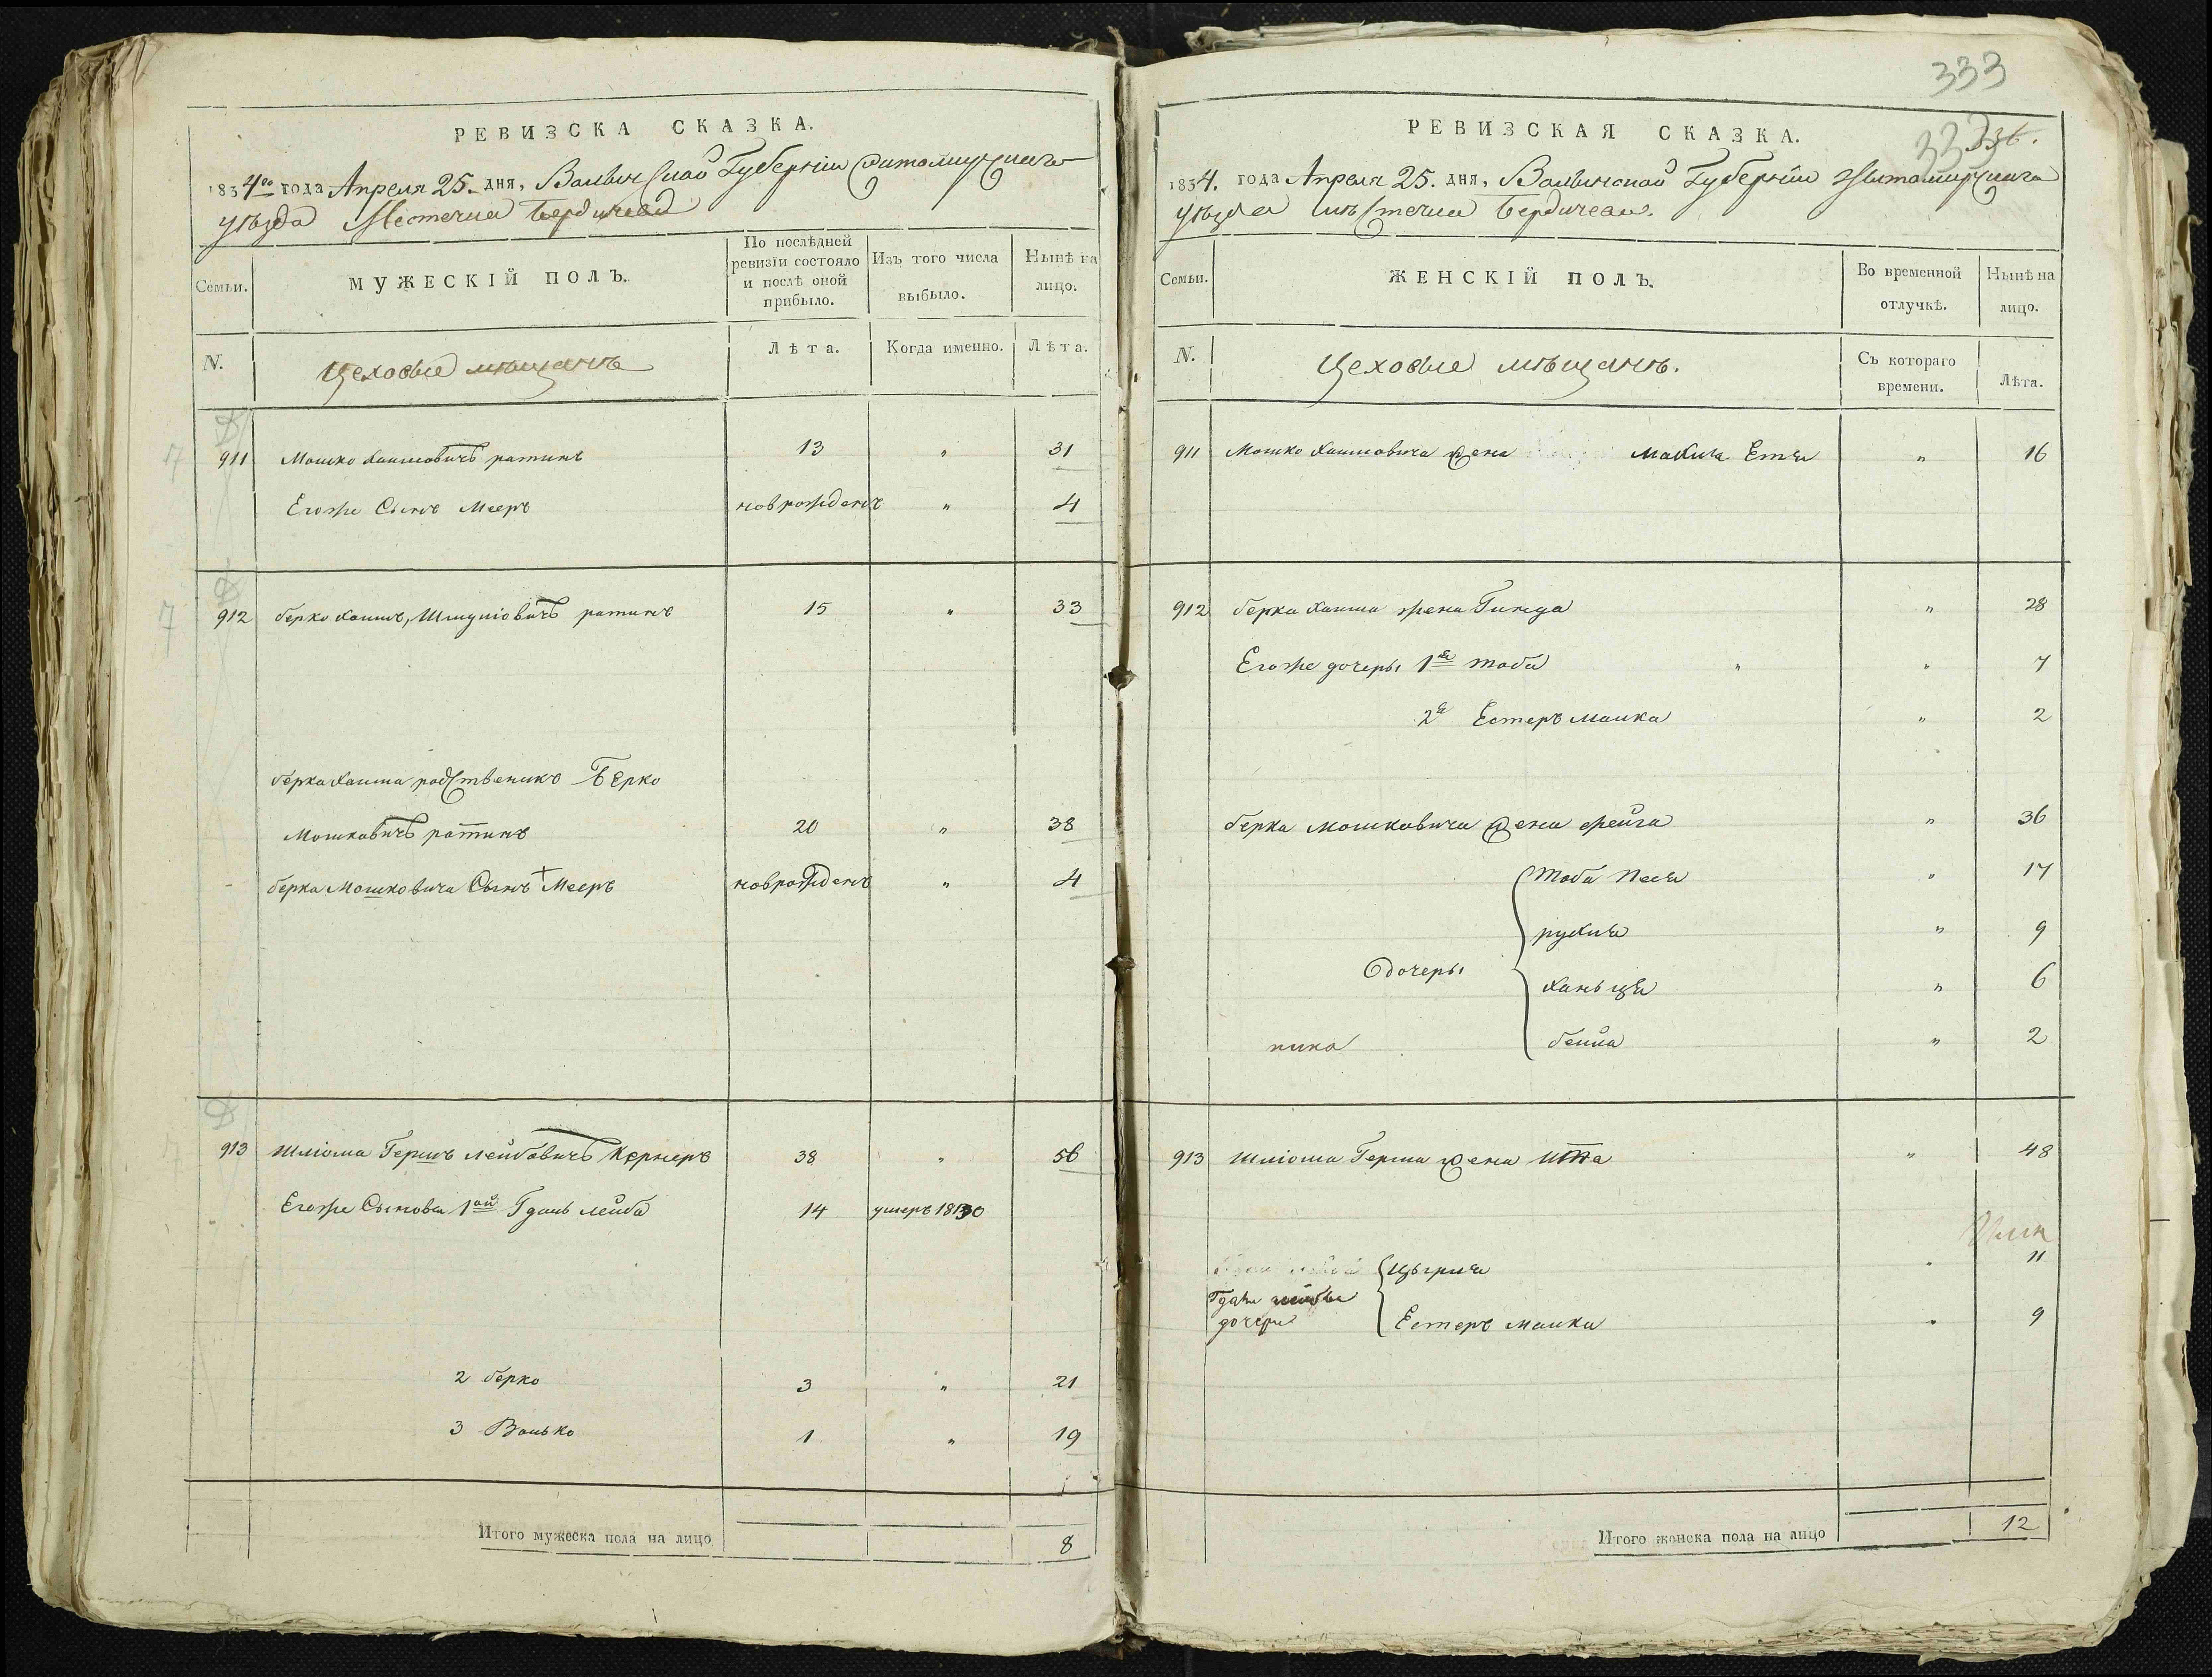 РЕВИЗСКА СКАЗКА.
1834го года Апреля 25. дня, Волынской Губернии Житомирскаго
уѣзда Месточка Бердичева
Семьи.
МУЖЕСКІЙ ПОЛЪ.
По послѣдней
ревизіи состояло
и послѣ оной
прибыло.
Изъ того числа
выбыло.
Нынѣ на
лицо.
N.
Цеховые мѣщанѣ
Лѣта.
Когда именно.
Лѣта.
911 Мошко Хаимовичъ ратинъ 13 " 31
Егоже Сынъ Мееръ новрожденъ " 4
912 берко Хаимъ, Шмуліовичъ ратинъ 15 " 33
берка Хаима родственикъ Берко
Мошковичъ ратинъ 20 " 38
берка Мошковича Сынъ Мееръ новрожденъ " 4
913 Шліома Гершъ Лейбовичъ Кернеръ 38 " 56
Егоже Сыновья 1ой Гдаль лейба 14 умеръ 1830
2 берко 3 " 21
3 Волько 1 " 19
Итого мужеска пола на лицо 8
333
333
336.
РЕВИЗСКАЯ СКАЗКА.
1834. года Апреля 25. дня, Волынской Губерніи Житомирскаго
уѣзда мѣстечка Бердичева.
Семьи.
ЖЕНСКІЙ ПОЛЪ.
Во временной
отлучкѣ.
Нынѣ на
лицо.
N.
Цеховые мѣщанѣ.
Съ котораго
времени.
Лѣта.
911 Мошко Хаимовича жена Етя " 16
912 берка Хаима жена Гинда " 28
Егоже дочеры 1я тоба " " 7
2я Естеръ малка " 2
берка Мошковича жена фейга " 36
тоба Песя " 17
рухля " 9
дочеры
ханьця " 6
бейла " 2
913 Шліома Герша жена " 48
Цырля " 11
Гдаля лейбы
дочери
Естеръ малка " 9
Итого женска пола на лицо 12